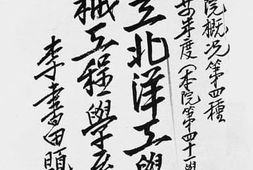 院概況第四種
廿年度（本院第四十一學
立北洋工學
械工程學系
李書田題